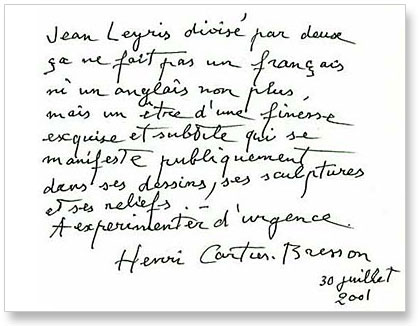 Jean Leyris divisé par deux
ça ne fait pas un français
ni un anglais non plus
mais un être d'une finesse
exquise et subtile qui se
manifeste publiquement
dans ses dessins, ses sculptures
et ses reliefs...
A experimenter d'urgence.
Henri Cartier-Bresson
30 juillet
2001